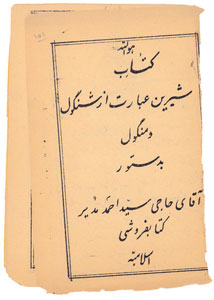 هوالله
کتاب
شیرین عبارت از شنگول
و منگول
بدستور
آقای حاجی سید احمد مدیر
کتابفروشی
اسلامیه